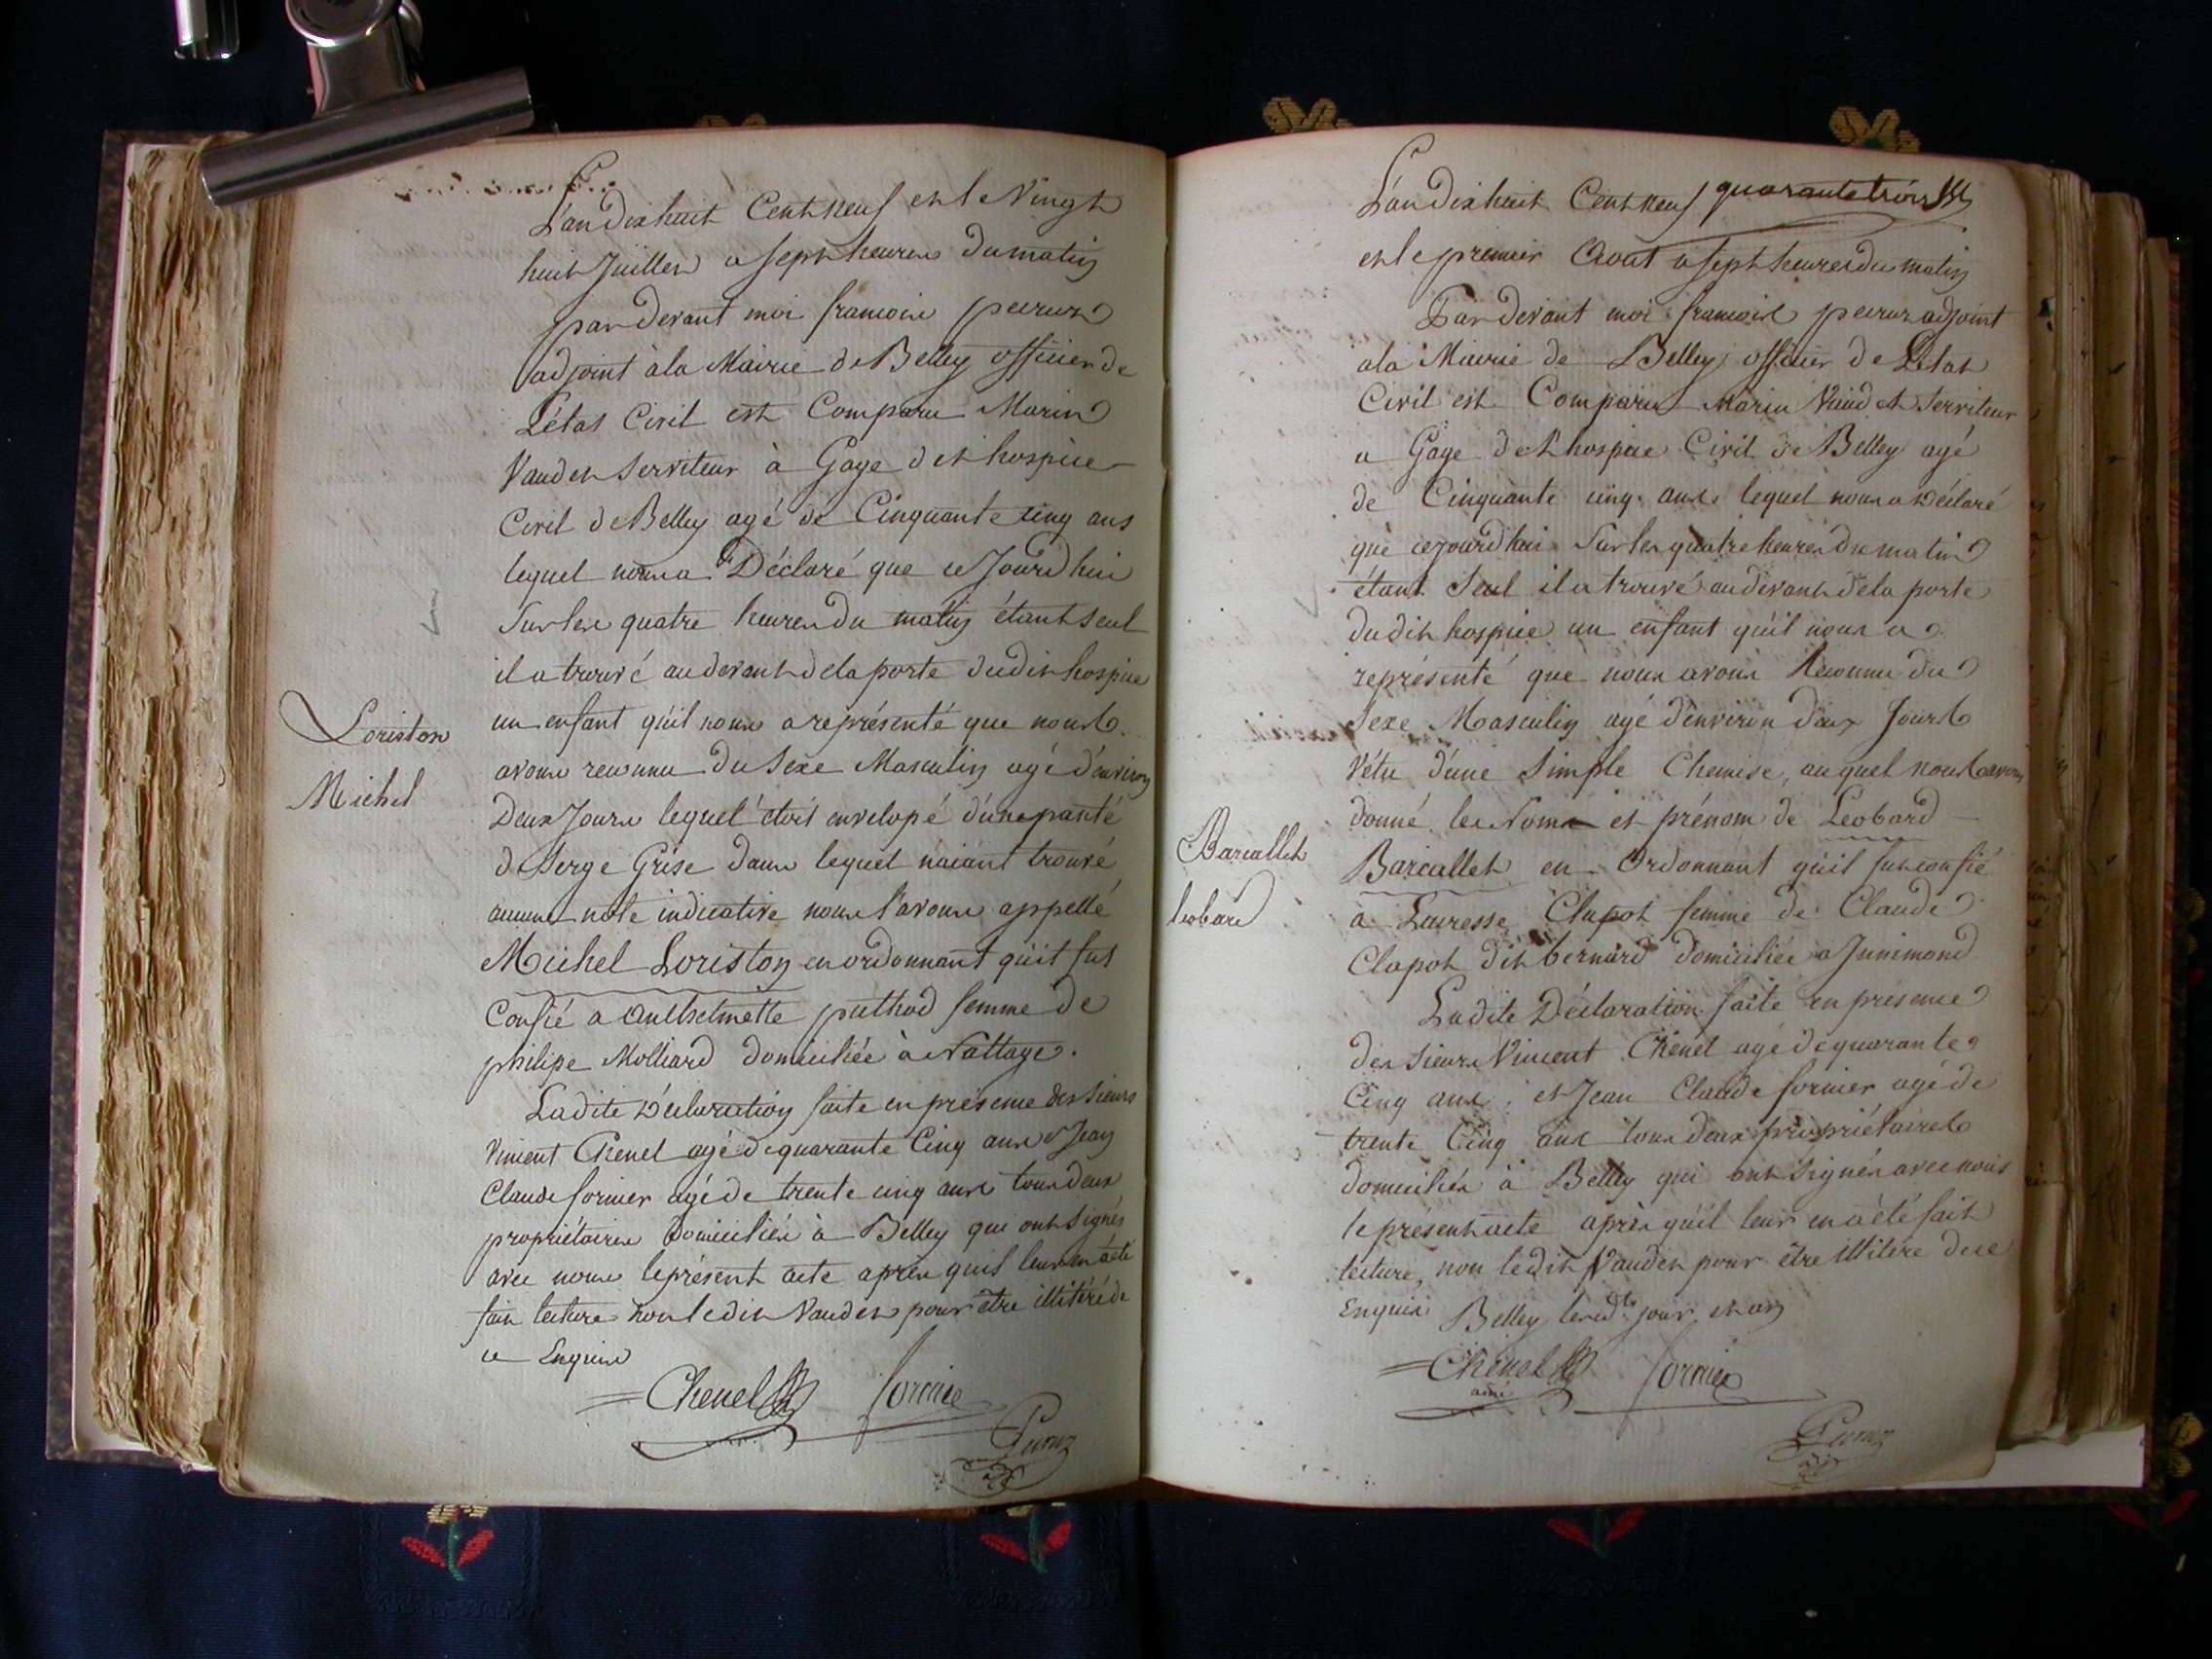 L'an dix huit Cent neuf et le Vingt
huit Juillet a sept heures du matin
par devant moi francois peeruz
adjoint à la Mairie de Belley officier de
L'état Civil est Comparu Marin
Vaudet serviteur à Gage de l'hospice
Civil de Belley agé de Cinquante cinq ans
lequel nous a Déclaré que ce Jourd'hui
Sur les quatre heures du matin étant seul
il a trouvé au devant de la porte dudit hospice
un enfant qu'il nous a représenté que nous
avons reconnu du Sexe Masculin agé d'environ
Deux Jours lequel étoit envelopé d'une panté
de Serge Grise dans lequel naiant trouvé
aucune note indicative nous l'avons appellé
Michel Loriston en ordonnant qu'il fut
Confié a Anthelmette puthod femme de
philipe Molliard domiciliée à Nattage.
Ladite Déclaration faite en présence des Sieurs
Vincent Chenel agé de quarante Cinq ans et Jean
Claude fornier agé de trente cinq ans tous deux
propriétaires Domiciliés à Belley qui ont Signés
avec nous le présent acte après quil leur en a été
fait lecture non ledit Vaudet pour être illitéré de
ce Enquis
Chenel fornier
Peeruz
Loriston
Michel
L'an dix huit Cent neuf quarante trois
et le premier Aout a sept heures du matin
Par devant moi francois peeruz adjoint
a la Mairie de Belley officier de L'état
Civil est Comparu Marin Vaudet Serviteur
a Gage de l'hospice Civil de Belley agé
de Cinquante cinq ans lequel nous a Déclaré
que cejourd'hui Sur les quatre heures du matin
étant Seul il a trouvé au devant de la porte
dudit hospice un enfant qu'il nous a
représenté que nous avons Reconnu du
Sexe Masculin agé d'environ deux Jours
Vétu d'une Simple Chemise, auquel nous avons
donné les Noms et prénom de Leobard
Barcallet en Ordonnant qu'il fut confié
a Lucresse Clapot femme de Claude
Clapot dit bernard domiciliée a Junimond
Ladite Déclaration faite en présence
des Sieurs Vincent Chenel agé de quarante
Cinq ans, et Jean Claude fornier agé de
trente Cinq ans tous deux propriétaires
domiciliés à Belley qui ont Signés avec nous
le présent acte après qu'il leur en a été fait
lecture, non ledit Vaudet pour être illitéré de ce
Enquis Belley lesd.ts jour et an
Chenel fornier
ainé
Peeruz
Barcallet
leobard